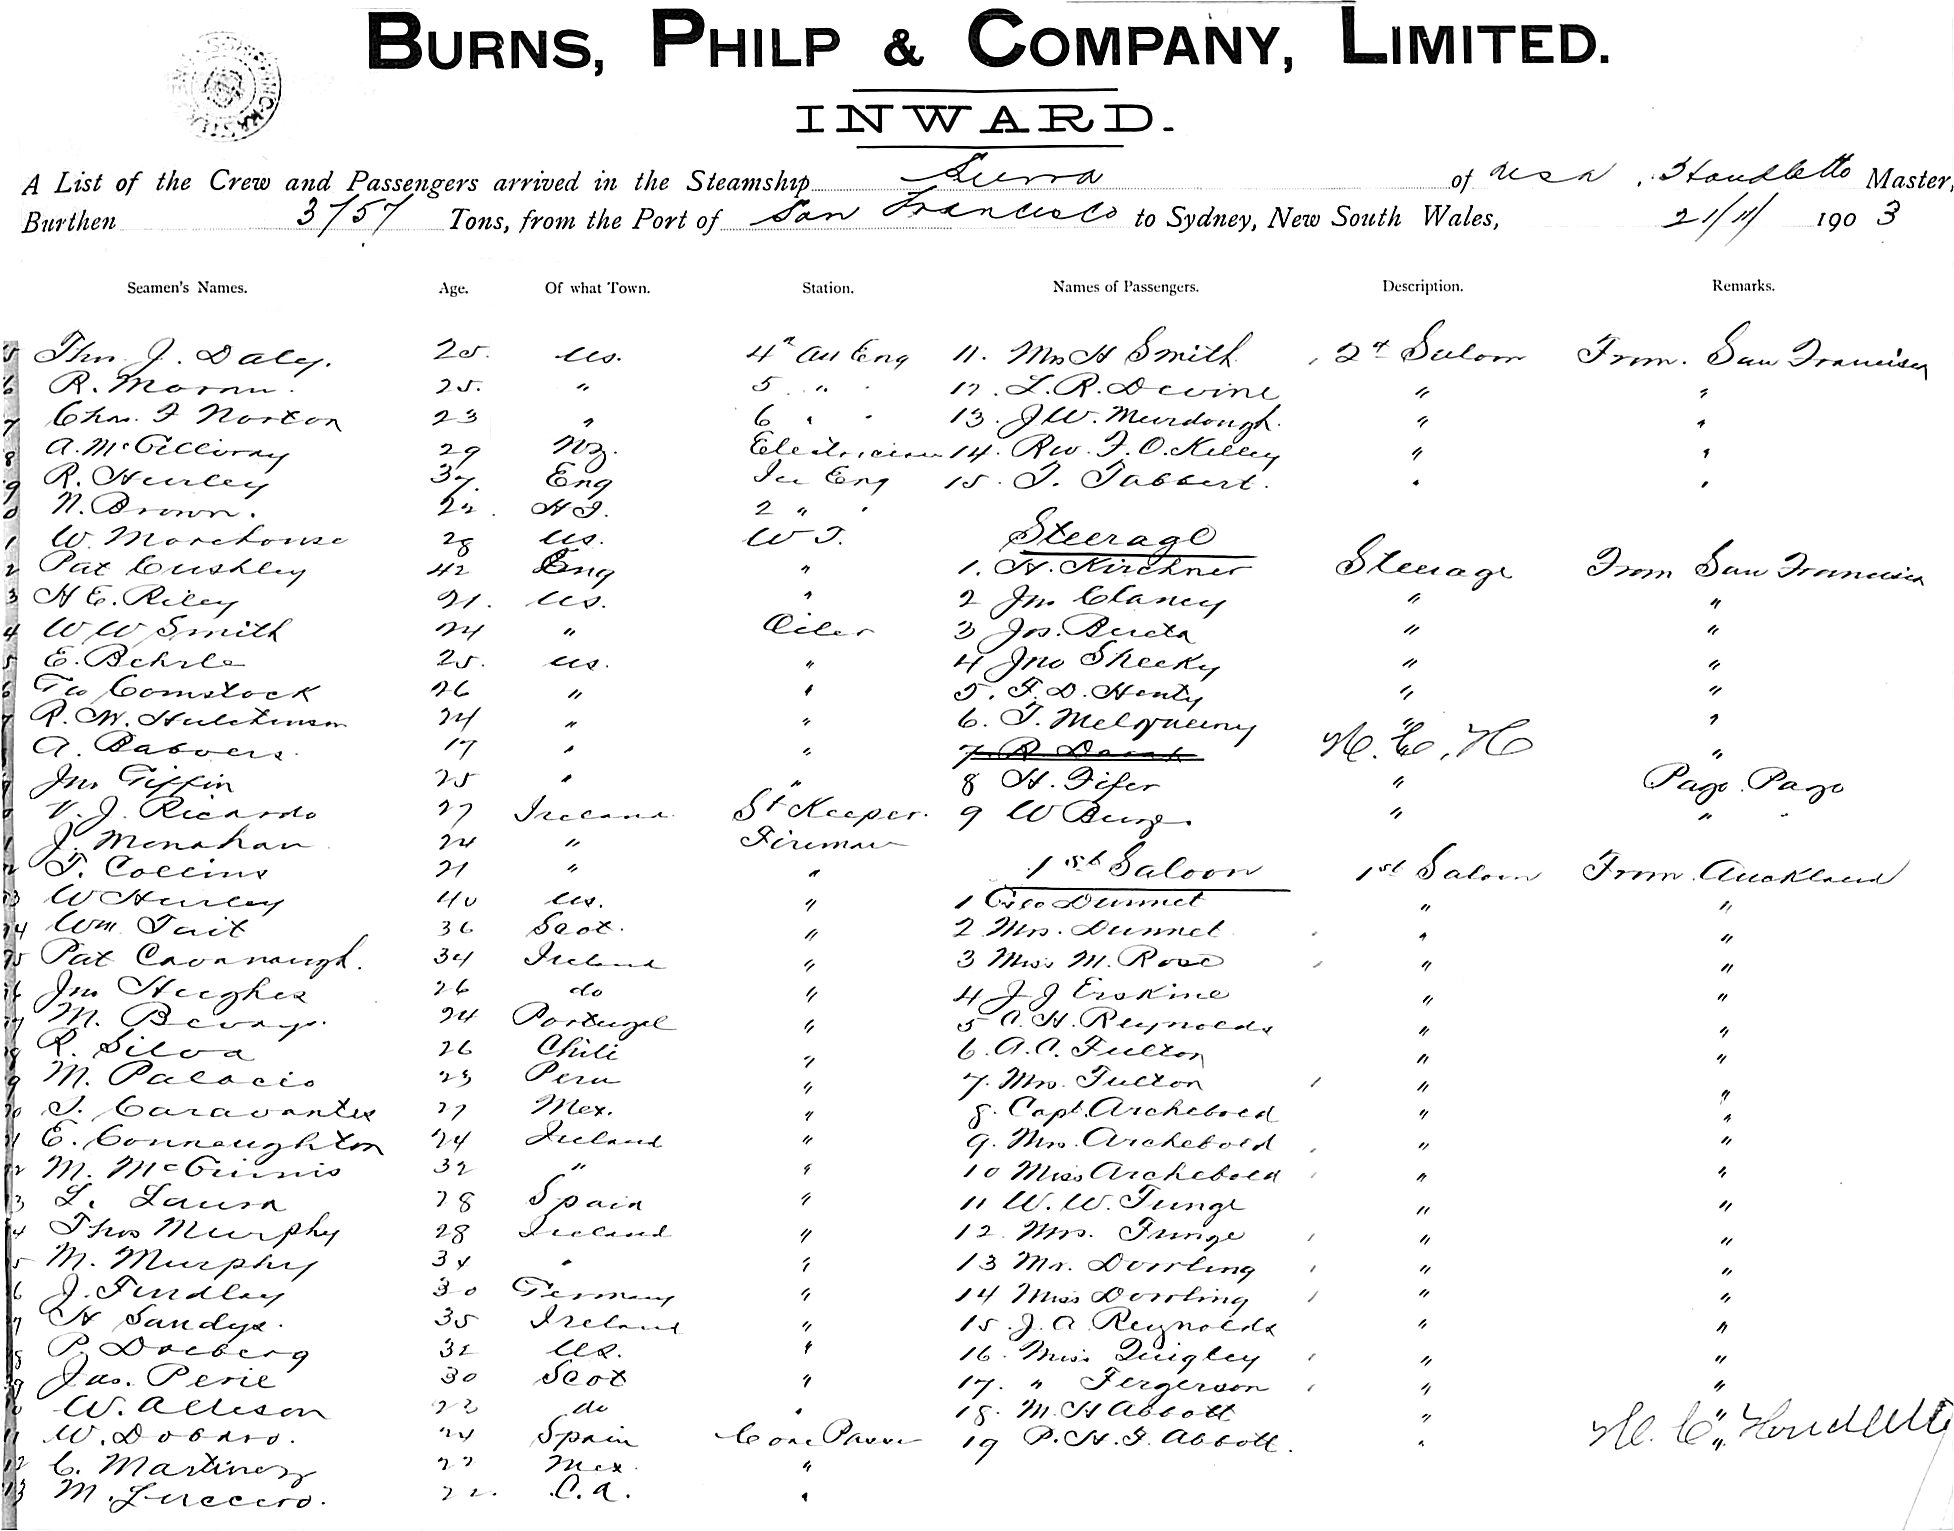 BURNS, PHILP & COMPANY, LIMITED.
INWARD.
A List of the Crew and Passengers arrived in the Steamship Sierra of USA, Houdlette Master,
Burthen 3757 Tons, from the Port of San Francisco to Sydney, New South Wales, 21/11/ 1903
Seamen's Names. Age. Of what Town. Station. Names of Passengers. Description. Remarks.
5 Thos J. Daly. 25. US. 4th Ass Eng 11. Mrs H Smith 2d Saloon From. San Francisco
6 R. Moran. 25. " 5 " 12. L.R. Devine " "
7 Chas. F Norton 23 " 6 " 13. J.W. Murdough. " "
8 A. McGillivray 29 NZ. Electrician 14. Rev. F.O. Kelley " "
9 R. Hurley 37. Eng Ice Eng 15. T. Tabbert. " "
0 N. Brown. 22. H I. 2 "
1 W. Morehouse 28 US. W T. Steerage
2 Pat Cushley 42 Eng " 1. H. Kirchner Steerage From San Francisco
3 H E. Riley 21. US. " 2 Jno Clancy " "
4 W W Smith 24 " Oiler 3 Jos. Bereta " "
5 E. Behrle 25. US. " 4 Jno Sheeky " "
6 Geo Comstock 26 " " 5. F. D. Henty " "
7 R. W. Hutchinson 24 " " 6. T. McIlqueeny " "
A. Babvers. 17 " " 7 R H.C.H "
Jno Giffin 25 " " 8 H. Fifer " Pago. Pago
V. J. Ricardo 27 Ireland St Keeper. 9 W " "
1 J. Monahan 24 " Fireman
2 T. Collins 21 " " 1st Saloon 1st Saloon From Auckland
3 W Hurley 40 US. " 1 Geo Dunnet " "
24 Wm. Tait 36 Scot. " 2 Mrs. Dunnet " "
25 Pat Cavanaugh. 34 Ireland " 3 Miss M. Rose " "
26 Jno Hughes 26 do " 4 J J Erskine " "
27 M. 24 Portugal " 5 C. H. Reynolds " "
28 R. Silva 26 Chili " 6. A. C. Fulton " "
9 M. Palacio 23 Peru " 7. Mrs. Fulton " "
30 T. Caravantes 27 Mex. " 8. Capt. Archebold " "
31 E. Connaughton 24 Ireland " 9. Mrs. Archebold " "
2 M. McGinnis 32 " " 10 Miss Archebold " "
3 L. Laura 28 Spain " 11 W. W. Funge " "
4 Thos Murphy 28 Ireland " 12. Mrs. Funge " "
5 M. Murphy 34 " " 13 Mr. Dowling " "
6 J. Findlay 30 Germany " 14 Miss Dowling " "
7 H Sandys. 35 Ireland " 15. J. A Reynolds " "
8 P. Dolberg 32 US. " 16. Miss Quigley " "
39 Jas. Perie 30 Scot " 17. " Fergerson " "
W. Allison 22 do " 18. M. H Abbott " "
W. Dobaro. 24 Spain Coal Passer 19 P. H. F. Abbott. " "
H. C. Houdlette
12 C. Martinez 22 Mex. "
13 M. Lucero. 22. C.A. "